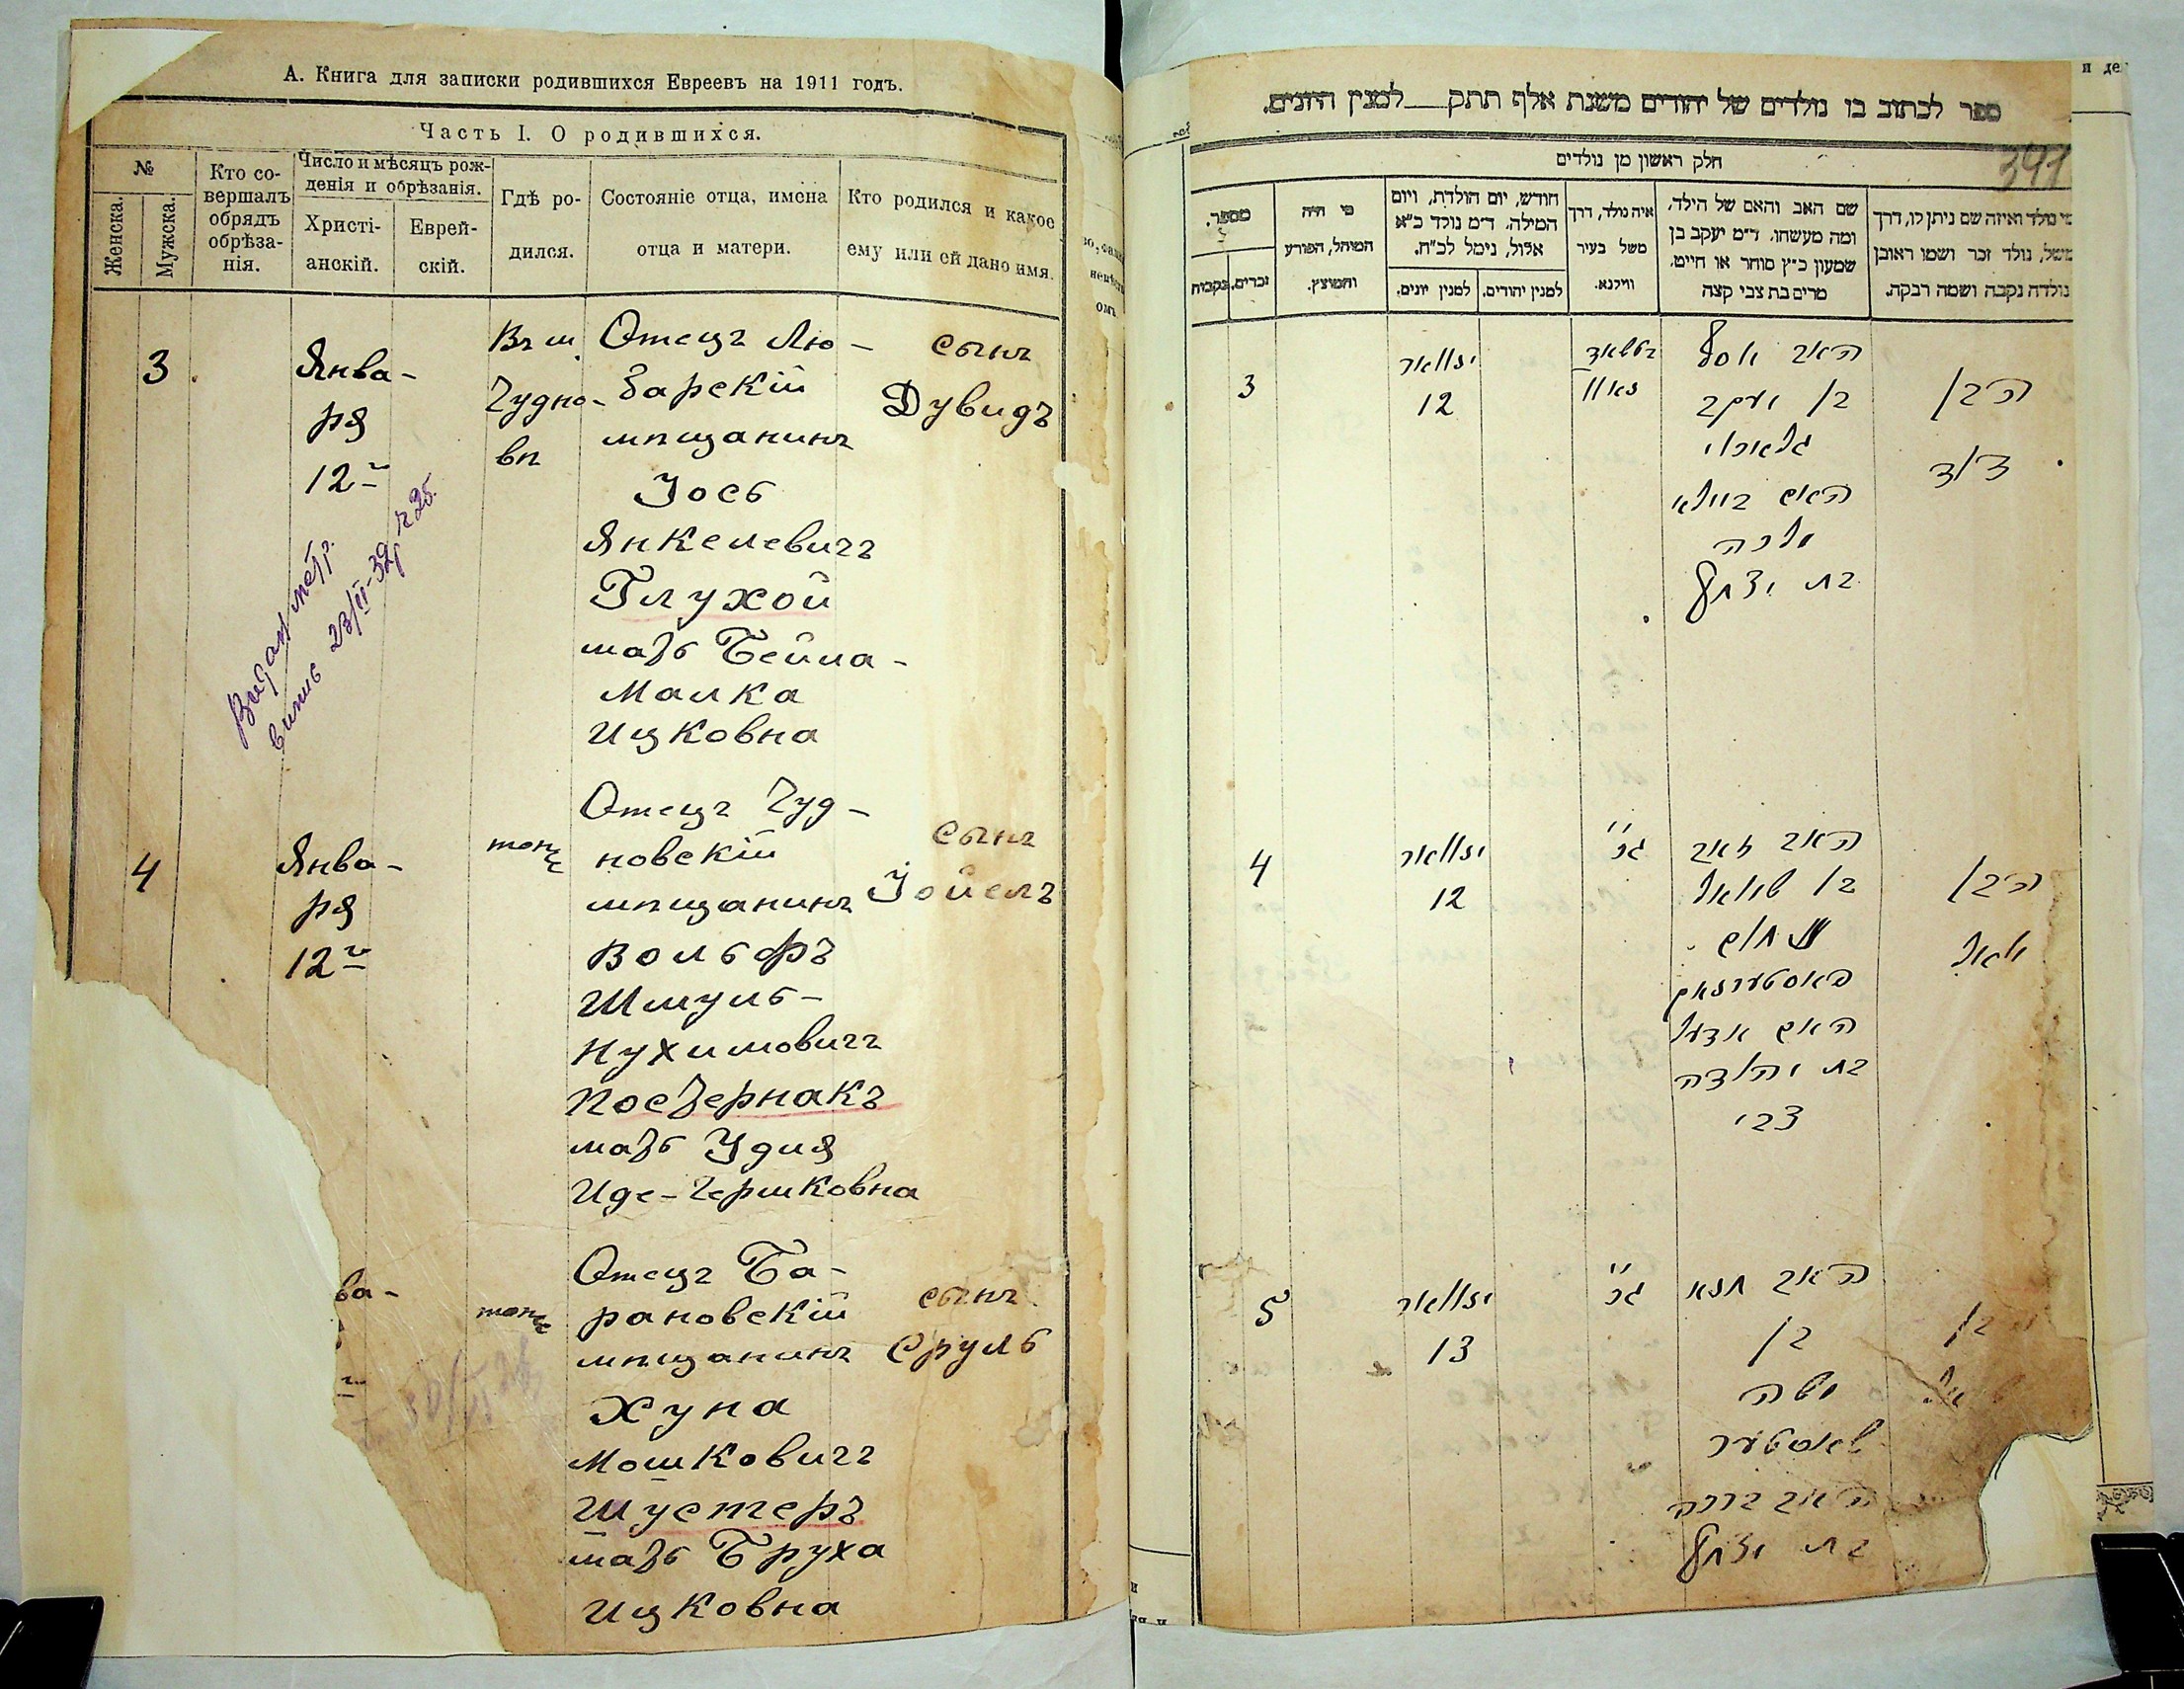 А. Книга для записки родившихся Евреевъ на 1911 годъ.
Часть I. О родившихся.
№
Женска.
Мужска.
Кто со-
вершалъ
обрядъ
обрѣза-
нія.
Число и мѣсяцъ рож-
денія и обрѣзанія.
Христі-
анскій.
Еврей-
скій.
Гдѣ ро-
дился.
Состояніе отца, имена
отца и матери.
Кто родился и какое
ему или ей дано имя.
3
Янва-
ря
12
Въ м.
Чудно-
вѣ
Отецъ Лю-
барскій
мѣщанинъ
Іось
Янкелевичъ
Глухой
мать Бейла-
Малка
Ицковна
сынъ
Дувидъ
4
Янва-
ря
12
Отецъ Чуд-
новскій
мѣщанинъ
Вольфъ
Шмуль-
Нухимовичъ
Постернакъ
мать Удля
Иде-Гершковна
сынъ
Іойель
ва-
Отецъ Ба-
рановскій
мѣщанинъ
Хуна
Мошковичъ
Шустеръ
мать Бруха
Ицковна
сынъ
Сруль
ספר לכתוב בו נולדים של יהודים משנת אלף תתק למנין היונים.
391
חלק ראשון מן נולדים
מספר.
זכרים.
נקבות
מי היה
המוהל, הפורע
והמוצץ.
חודש, יום הולדת, ויום
המילה. ד״מ נולד כ״א
אלול, נימל לכ״ח.
למנין יונים.
למנין יהודים.
איה נולד, דרך
משל בעיר
ווילנא.
שם האב והאם של הילד,
ומה מעשהו. ד״מ יעקב בן
שמעון כ״ץ סוחר או חייט,
מרים בת צבי קצה
מי נולד ואיזה שם ניתן לו, דרך
משל, נולד זכר ושמו ראובן
נולדה נקבה ושמה רבקה.
3
ינואר
12
האב יוסף
בן יעקב
האם ביילא
מלכה
בת יצחק
הבן
דוד
4
ינואר
12
האב זאב
בן שמואל
נחום
פאסטערנאק
האם אדעל
בת יהודה
צבי
הבן
יואל
5
ינואר
13
האב חנא
בן
משה
שוסטער
ברכה
בת יצחק